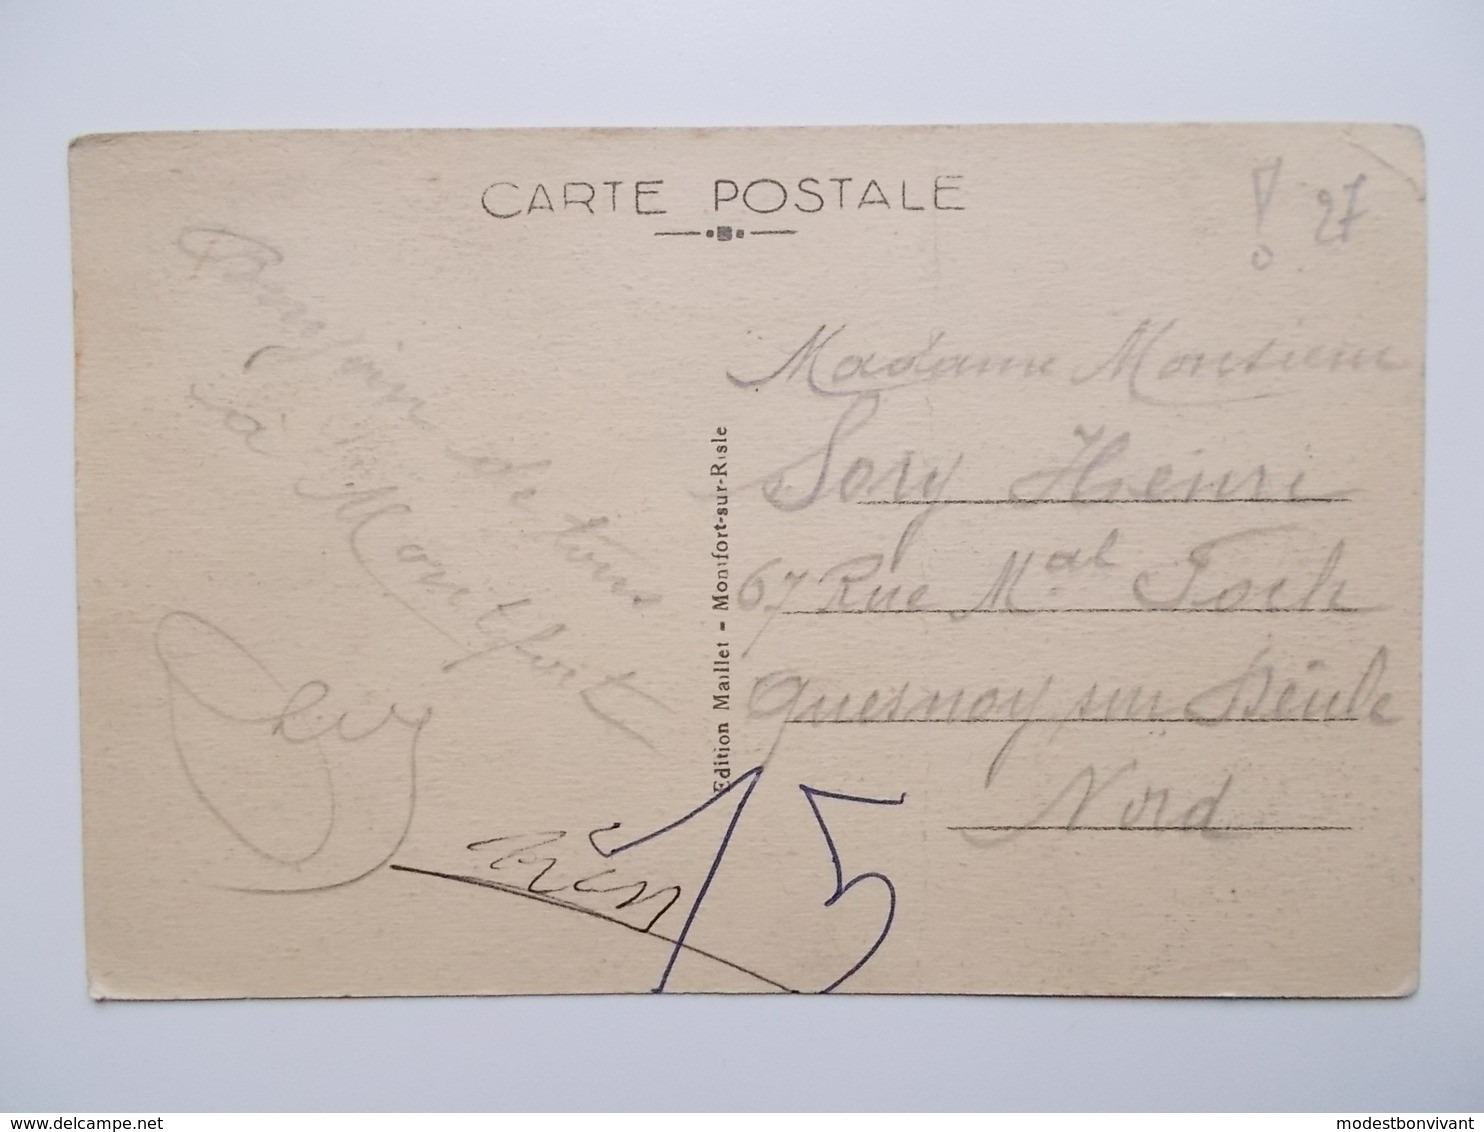 CARTE POSTALE
! 27
Bonjour de tous
à Montfort
Madame Monsieur
Sory Henri
67 Rue Mal Foch
Quesnoy sur Deûle
Nord
Edition Maillet - Montfort-sur-Risle
15
delcampe.net
modestbonvivant